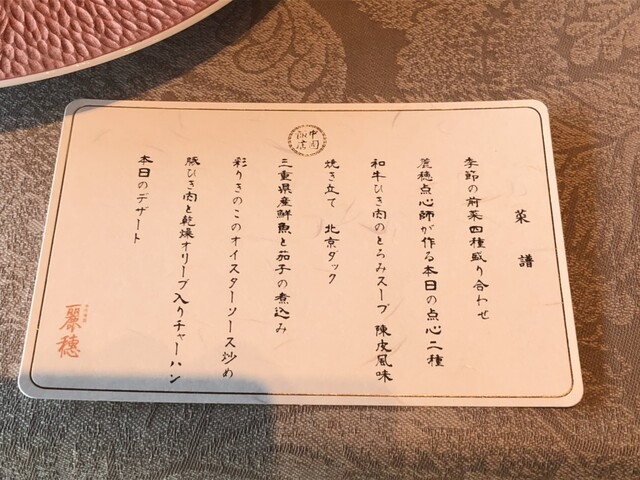 中国
飯店
菜譜
季節の前菜四種盛り合わせ
麗穂点心師が作る本日の点心二種
和牛ひき肉のとろみスープ 陳皮風味
焼き立て 北京ダック
三重県産鮮魚と茄子の煮込み
彩りきのこのオイスターソース炒め
豚ひき肉と乾燥オリーブ入りチャーハン
本日のデザート
麗穂